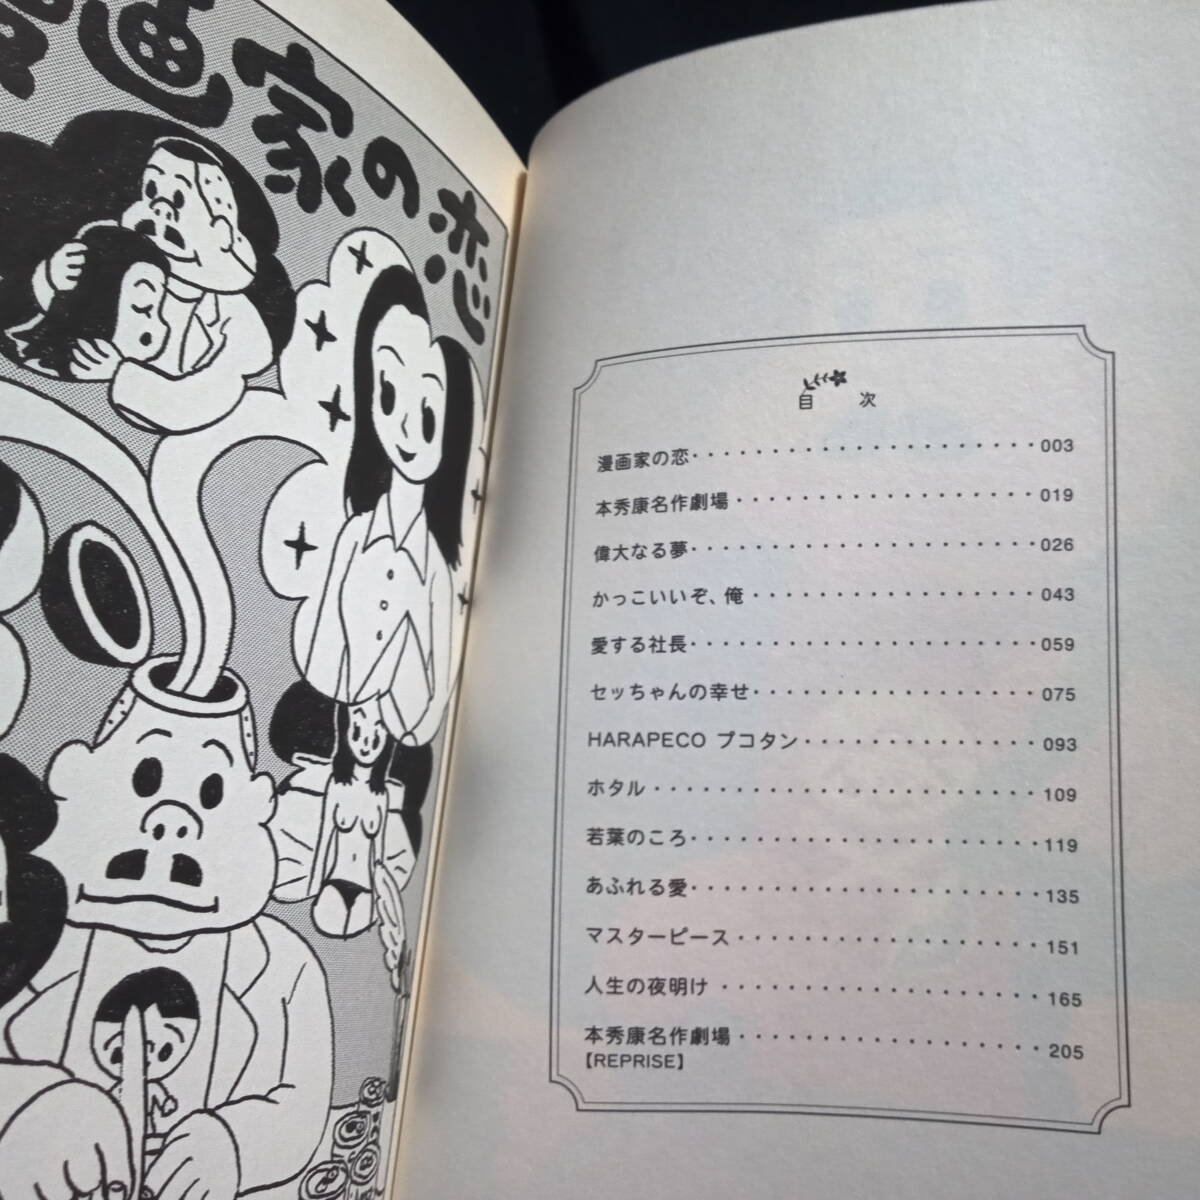 漫画家の恋
目 次
漫画家の恋····················003
本秀康名作劇場··················019
偉大なる夢····················026
かっこいいぞ、俺·················043
愛する社長····················059
セッちゃんの幸せ·················075
HARAPECO プコタン··············093
ホタル······················109
若葉のころ····················119
あふれる愛····················135
マスターピース··················151
人生の夜明け···················165
本秀康名作劇場··················205
【REPRISE】